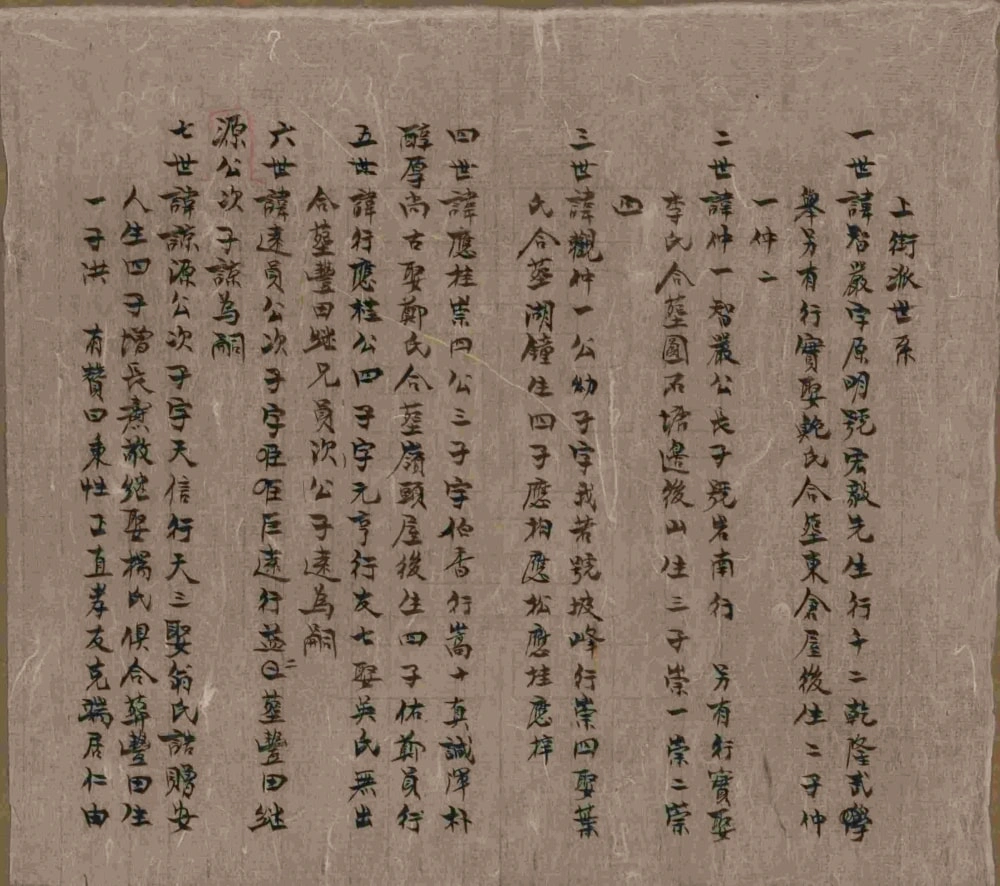 上街派世系
一世諱智嚴字原明號宏毅先生行千二乾隆武學
舉另有行實娶鮑氏合塟東倉屋後生二子仲
一仲二
二世諱仲一智嚴公長子號岩南行 另有行實娶
李氏合塟圓石塘邊後山生三子崇一崇二崇
四
三世諱觀仲一公幼子字我若號坡峰行崇四娶葉
氏合塟湖鐘生四子應柏應松應桂應梓
四世諱應桂崇四公三子字伯香行嵩十真誠渾朴
醇厚尚古娶鄭氏合塟嶺頭屋後生四子佑鄭員行
五世諱行應桂公四子字元亨行友七娶吳氏無出
合塟豐田継兄員次公子遠為嗣
六世諱遠員公次子字臣遠行益二塟豐田継
源公次子諒為嗣
七世諱諒源公次子字天信行天三娶翁氏誥贈安
人生四子增長 敬継娶楊氏俱合葬豐田生
一子洪 有贊曰秉性正直孝友克端居仁由